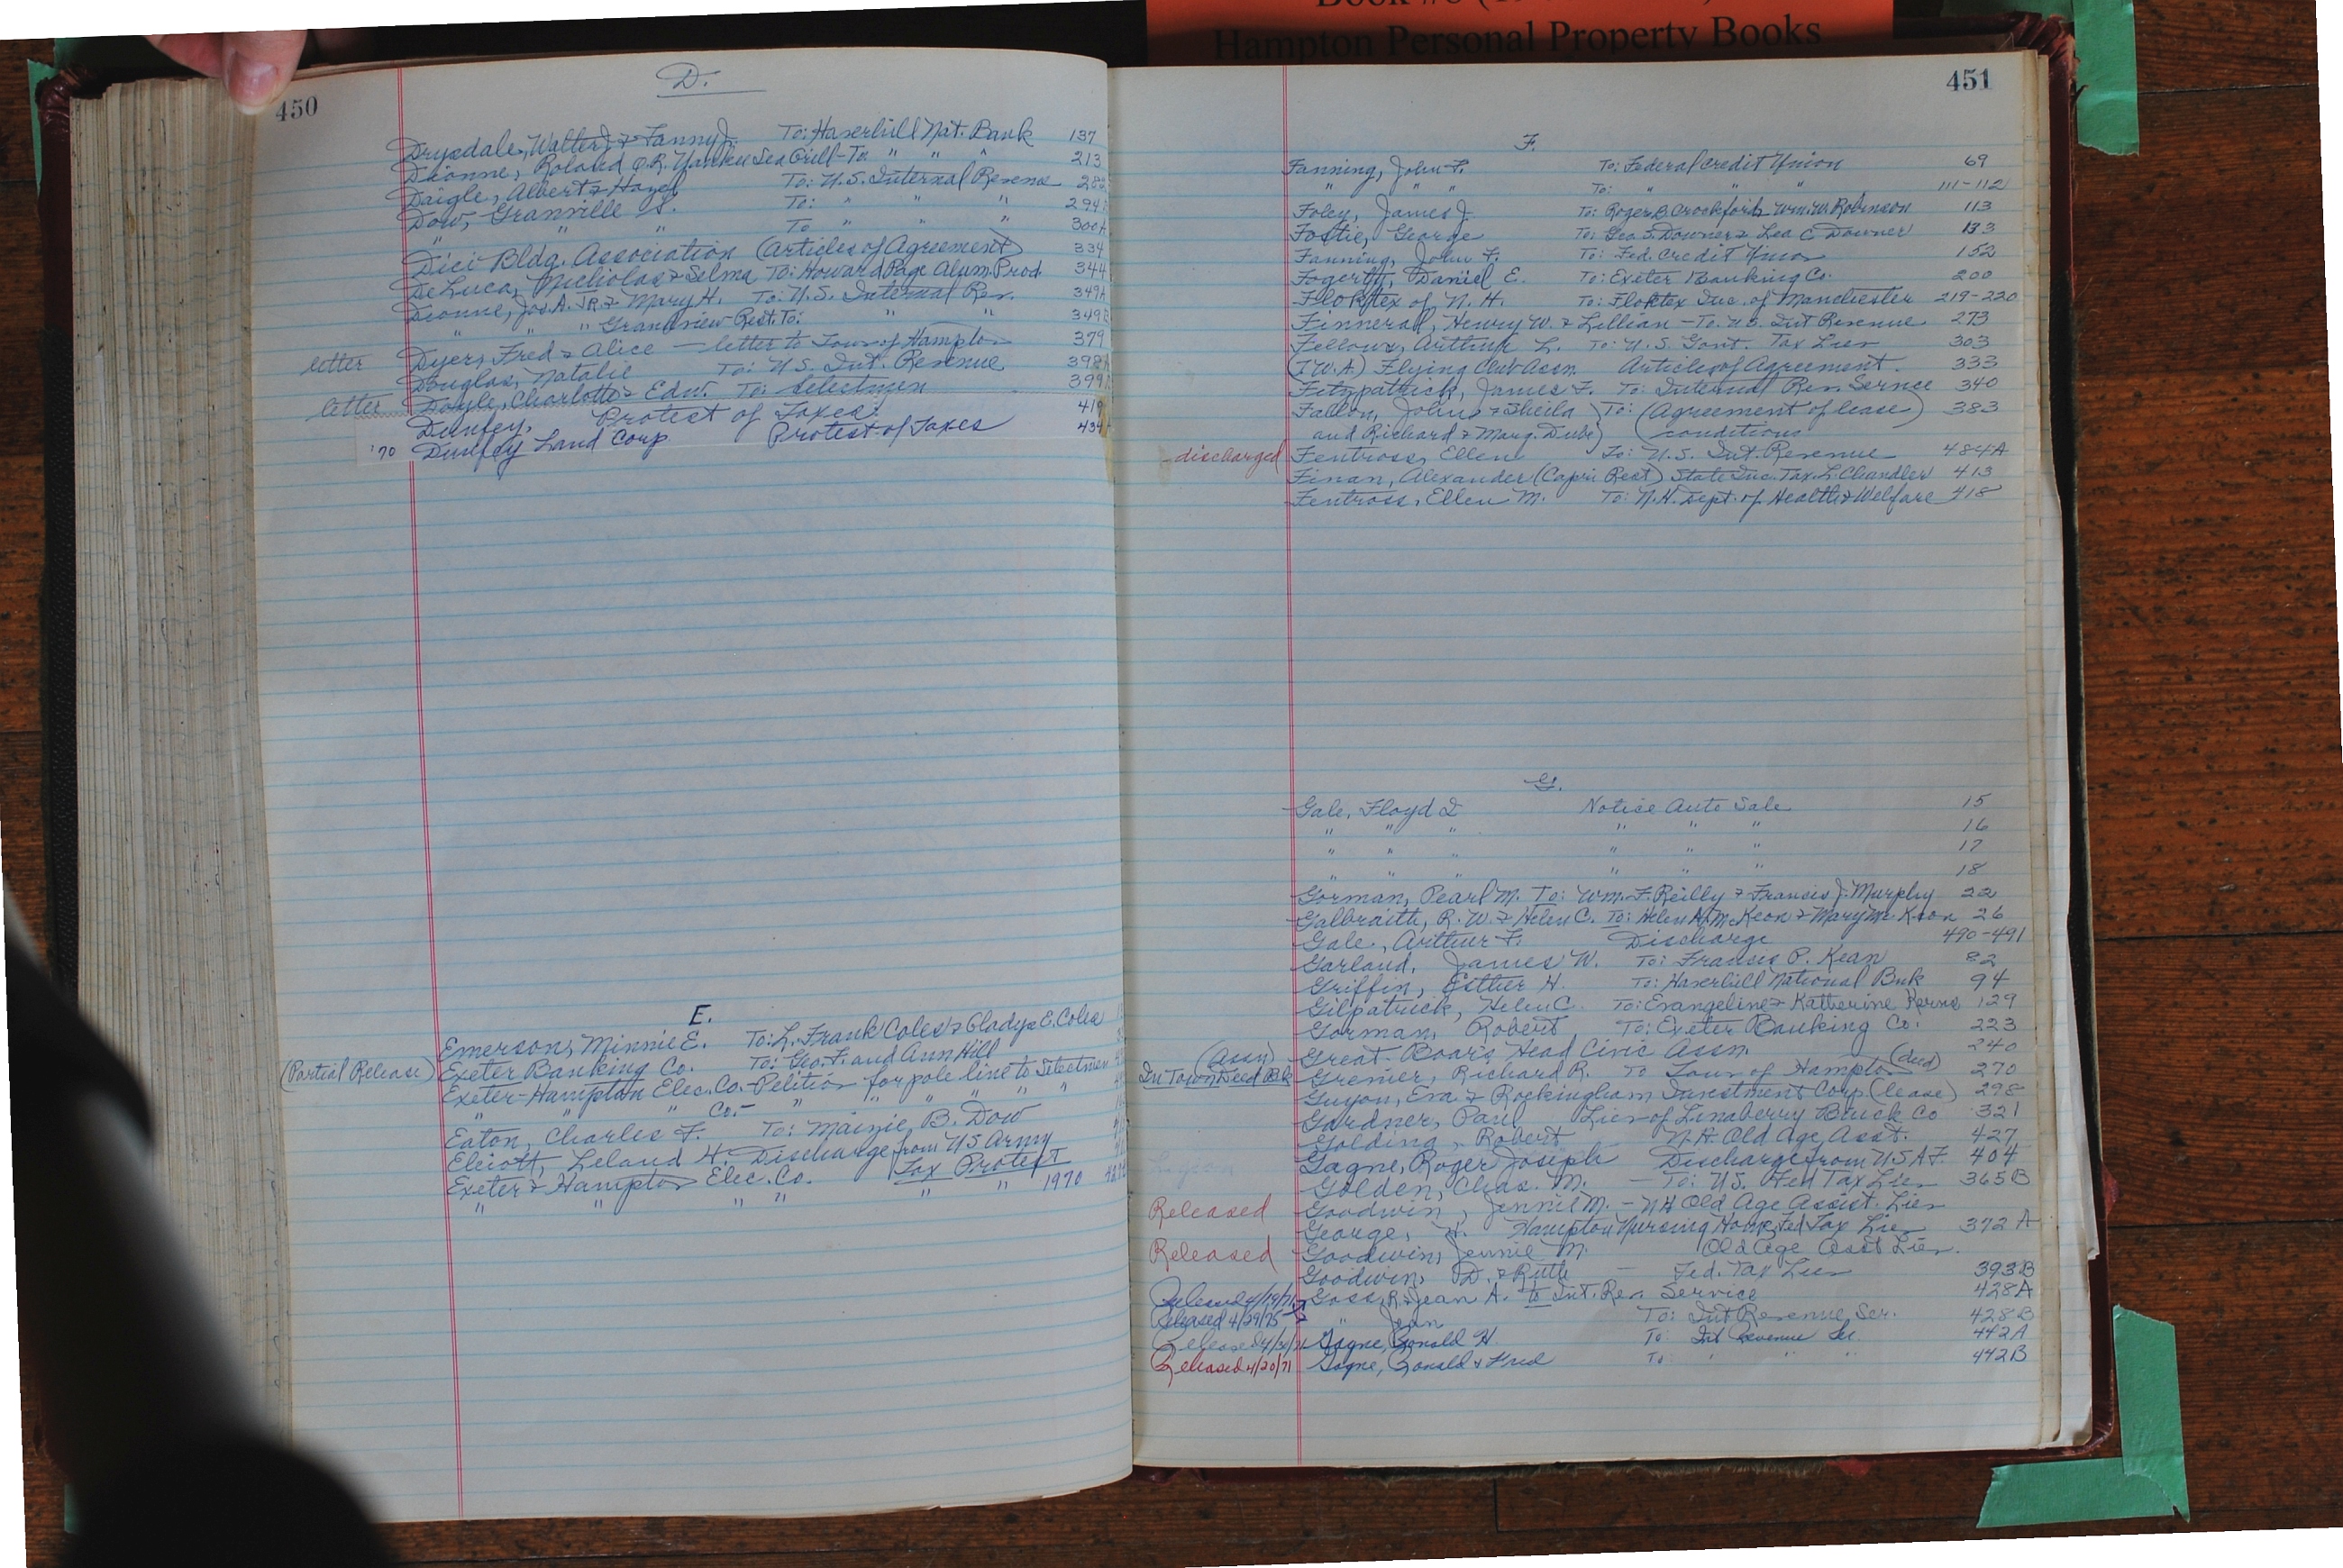 Hampton Personal Property Books
450
D.
Drysdale, Walter J. & Fanny J. To: Haverhill Nat. Bank 137
Dionne, Roland O.R. Yankee Sea Grill - To " " " 213
Daigle, Albert & Hazel To: U.S. Internal Revenue 282
Dow, Granville S. To: " " " 294
" " " To " " " 300A
Dici Bldg. Association (Articles of Agreement) 334
DeLuca, Nicholas & Selma To: Howard Page Alum. Prod. 344
Dionne, Jos. A. Jr. & Mary H. To: U.S. Internal Rev. 349A
" " " Grandview Rest. To: " " 349B
letter Dyers Fred & Alice — letter to Town of Hampton 379
Douglas, Natalie To: U.S. Int. Revenue 398A
letter Doyle, Charlotte & Edw. To: Selectmen 399
Dunfey, Protest of Taxes. 419
'70 Dunfey Land Corp Protest of Taxes 434
E.
Emerson, Minnie E. To: L. Frank Coles & Gladys E. Coles
(Partial Release) Exeter Banking Co. To: Geo. F. and Ann Hill
Exeter-Hampton Elec. Co. - Petition for pole line to Selectmen
" " " Co. - " " " " "
Eaton, Charles F. To: Mainie B. Dow
Elcott, Leland H. Discharge from US Army
Exeter & Hampton Elec. Co. Tax Protest
" " " " " " 1970
451
F.
Fanning, John F. To: Federal Credit Union 69
" " " To: " " " 111-112
Foley, James J. To: Roger B. Crockford & Wm. W. Robinson 113
Fostie, George To: Geo. S. Downer & Lea C. Downer 133
Fanning, John F. To: Fed. Credit Union 152
Fogerty, Daniel E. To: Exeter Banking Co. 200
Floktex of N.H. To: Floktex Inc. of Manchester 219-220
Finneral, Henry W. & Lillian - To: U.S. Int Revenue 273
Fellows, Arthur L. To: U.S. Govt. Tax Lien 303
(T.W.A.) Flying Club Assn. Articles of Agreement. 333
Fitzpatrick, James F. To: Internal Rev. Service 340
Fallon, John & Sheila To: (Agreement of lease) 383
and Richard & Marg. Dube) conditions
discharged Fentross, Ellen To: U.S. Int. Revenue 484A
Finan, Alexander (Capri Rest) State Inc. Tax. L. Chandler 413
Fentross, Ellen M. To: N.H. Dept. of Health & Welfare 418
G.
Gale, Floyd I Notice Auto Sale 15
" " " " " " 16
" " " " " " 17
" " " " " " 18
Gorman, Pearl M. To: Wm. F. Reilly & Francis J. Murphy 22
Galbraith, R.W. & Helen C. To: Helen A. McKeon & Mary McKeon 26
Gale, Arthur F. Discharge 490-491
Garland, James W. To: Francis P. Kean 82
Griffin, Esther H. To: Haverhill National Bnk 94
Gilpatrick, Helen C. To: Evangeline & Katherine Kerns 129
Gorman, Robert To: Exeter Banking Co. 223
(Assn) Great Boars Head Civic Assn. 240
In Town Deed Bk Grenier, Richard R. To Town of Hampton (deed) 270
Guyon, Eva & Rockingham Investment Corp. (lease) 298
Gardner, Paul Lien of Linaberry Buick Co 321
Golding, Robert N.H. Old Age Asst. 427
Gagne, Roger Joseph Discharge from USAF. 404
Golden, Chas. M. - To: U.S. Fed Tax Lien 365B
Released Goodwin, Jennie M. - NH Old Age Assist. Lien
George, H. Hampton Nursing Home Fed Tax Lien 372A
Released Goodwin, Jennie M. Old Age Asst Lien.
Goodwin, D. & Ruth - Fed. Tax Lien 393B
Released 4/19/71 Goss, R. & Jean A. to Int. Rev. Service 428A
Released 4/29/75 " Jean To: Int Revenue Ser. 428B
Released 4/20/71 Gagne, Ronald H. To Int Revenue Ser 442A
Released 4/20/71 Gagne, Ronald & Fred To " " " 442B